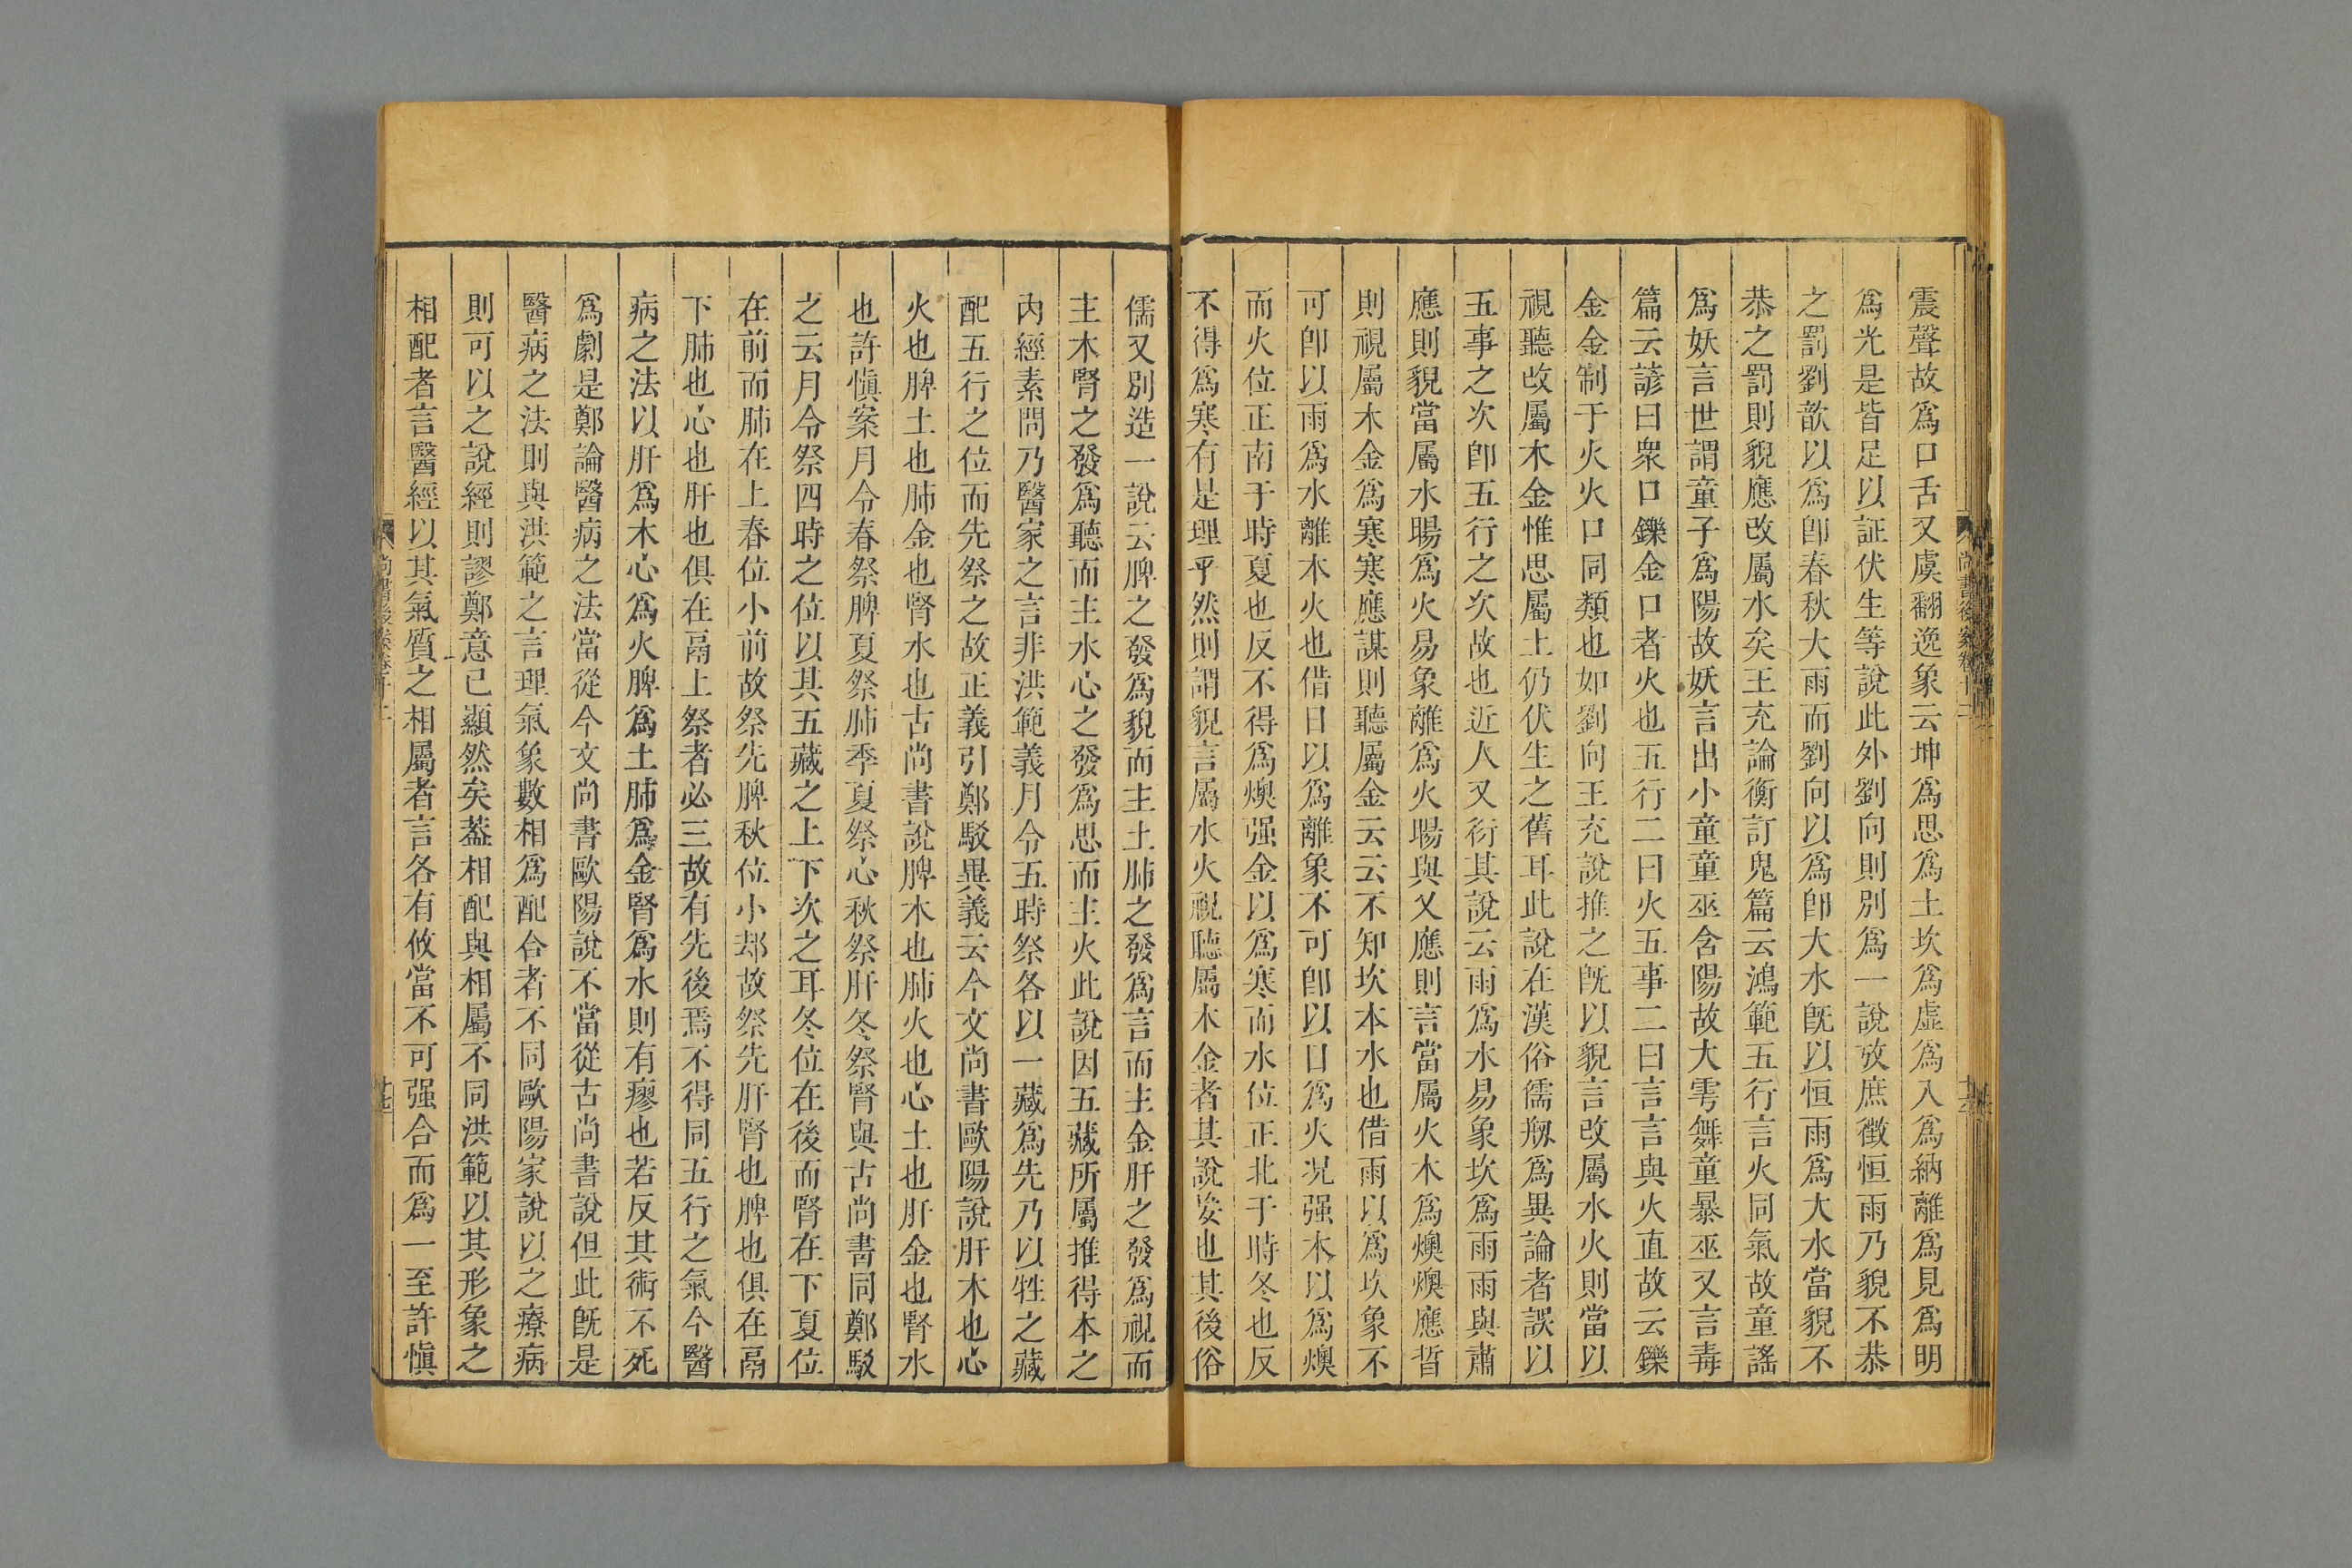 震聲故爲口舌又虞翻逸象云坤爲思爲土坎爲虛爲入爲納離爲見爲明
爲光是皆足以証伏生等說此外劉向則別爲一說攷庶徵恒雨乃貌不恭
之罰劉歆以爲卽春秋大雨而劉向以爲卽大水旣以恒雨爲大水當貌不
恭之罰則貌應改屬水矣王充論衡訂鬼篇云鴻範五行言火同氣故童謠
爲妖言世謂童子爲陽故妖言出小童童巫含陽故大雩舞童暴巫又言毒
篇云諺曰衆口鑠金口者火也五行二曰火五事二曰言言與火直故云鑠
金金制于火火口同類也如劉向王充說推之旣以貌言改屬水火則當以
視聽改屬木金惟思屬土仍伏生之舊耳此說在漢俗儒剏爲異論者誤以
五事之次卽五行之次故也近人又衍其說云雨爲水易象坎爲雨雨與肅
應則貌當屬水暘爲火易象離爲火暘與乂應則言當屬火木爲燠燠應晢
則視屬木金爲寒寒應謀則聽屬金云云不知坎本水也借雨以爲坎象不
可卽以雨爲水離本火也借日以爲離象不可卽以日爲火况强木以爲燠
而火位正南于時夏也反不得爲燠强金以爲寒而水位正北于時冬也反
不得爲寒有是理乎然則謂貌言屬水火視聽屬木金者其說妄也其後俗
儒又別造一說云脾之發爲貌而主土肺之發爲言而主金肝之發爲視而
主木腎之發爲聽而主水心之發爲思而主火此說因五藏所屬推得本之
內經素問乃醫家之言非洪範義月令五時祭各以一藏爲先乃以牲之藏
配五行之位而先祭之故正義引鄭駁異義云今文尚書歐陽說肝木也心
火也脾土也肺金也腎水也古尚書說脾木也肺火也心土也肝金也腎水
也許愼案月令春祭脾夏祭肺季夏祭心秋祭肝冬祭腎與古尚書同鄭駁
之云月令祭四時之位以其五藏之上下次之耳冬位在後而腎在下夏位
在前而肺在上春位小前故祭先脾秋位小却故祭先肝腎也脾也俱在鬲
下肺也心也肝也俱在鬲上祭者必三故有先後焉不得同五行之氣今醫
病之法以肝爲木心爲火脾爲土肺爲金腎爲水則有瘳也若反其術不死
爲劇是鄭論醫病之法當從今文尚書歐陽說不當從古尚書說但此旣是
醫病之法則與洪範之言理氣象數相爲配合者不同歐陽家說以之療病
則可以之說經則謬鄭意已顯然矣葢相配與相屬不同洪範以其形象之
相配者言醫經以其氣質之相屬者言各有攸當不可强合而爲一至許愼
尚書後案卷十二